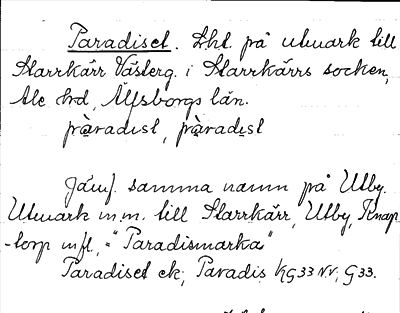 Paradiset. Lht. på utmark till
Starrkärr Västerg. i Starrkärrs socken,
Ale hrd, Älfsborgs län.
pàradist, pàradist
Jämf. samma namn på Utby.
Utmark m.m. till Starrkärr, Utby, Knap
-torp m fl, = "Paradismarka"
Paradiset ek; Paradis KG33 N.V; G33.